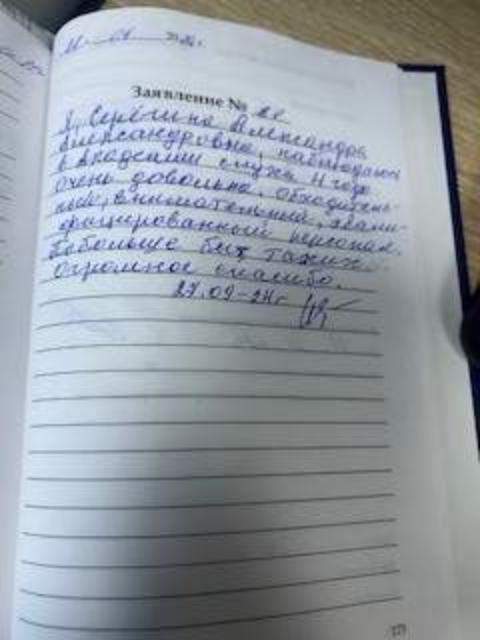 Заявление № 22
Я, Серёгина Александра
Александровна, наблюдаюсь
в Академии слуха 4 года
Очень довольна. Обходитель-
ный, внимательный, квали-
фицированный персонал.
Побольше бы таких.
Огромное спасибо.
27.09-24г